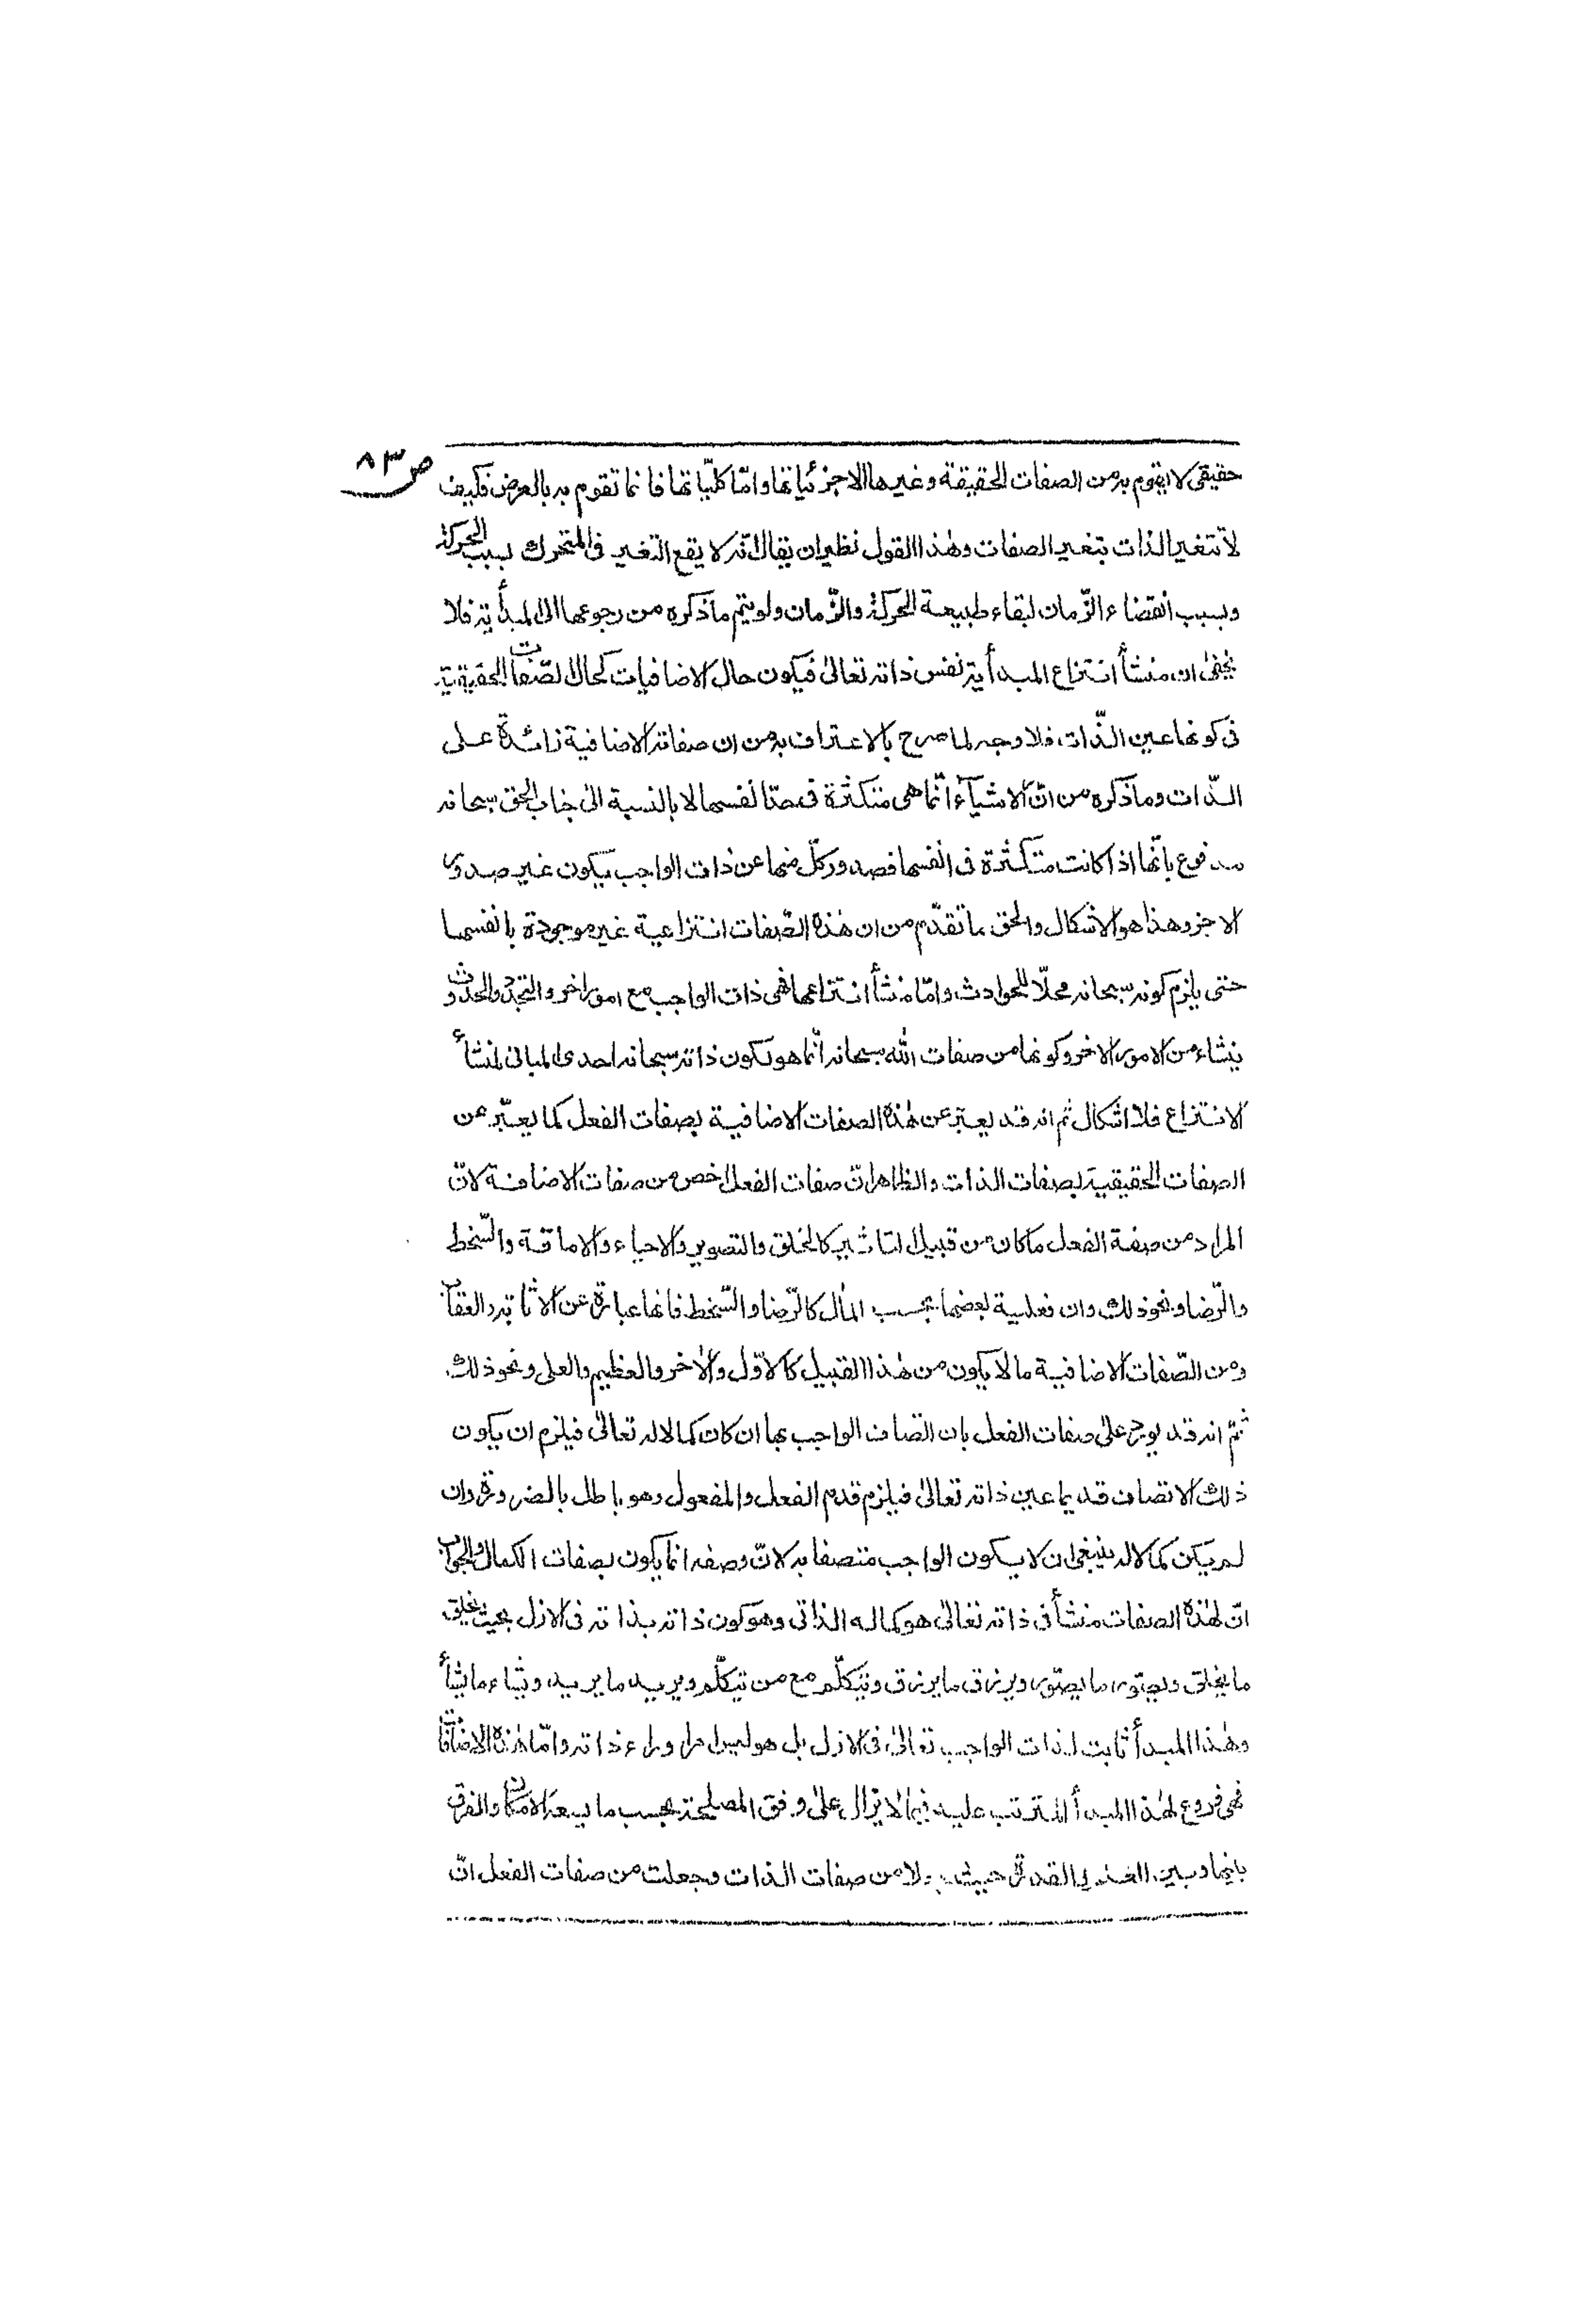 ص ٨٣
حقيقى لا يقوم به من الصفات الحقيقة وغيرها الا جزئياتها واما كليّاتها فانما تقوم به بالعرض فكيف
لا تتغير الذات بتغير الصفات وهذا القول نظير ان يقال انّه لا يقع التغير فى المتحرك بسبب الحركة
وبسبب انقضاء الزّمان لبقاء طبيعة الحركة والزّمان ولو يتم ما ذكره من رجوعها الى المبدأية فلا
يخفى ان منشأ انتزاع المبدأية نفس ذاته تعالى فيكون حال الاضافيات كحال الصّفات الحقيقية
فى كونها عين الذّات فلا وجه لما صرح بالاعتراف به من ان صفاته الاضافية زائدة على
الذّات وما ذكره من انّ الاشيآء انّما هى متكثرة فى حدّ انفسها لا بالنسبة الى جناب الحق سبحانه
مدفوع بانّها اذا كانت متكثرة فى انفسها فصدور كلّ منها عن ذات الواجب يكون غير صدور
الاخر وهذا هو الاشكال والحق ما تقدّم من ان هذه الصّفات انتزاعية غير موجودة بانفسها
حتى يلزم كونه سبحانه محلّا للحوادث وامّا منشأ انتزاعها فهى ذات الواجب مع امور اخر والتجدد والحدوث
ينشاء من الامور الاخر وكونها من صفات الله سبحانه انّما هو لكون ذاته سبحانه احدى المبانى لمنشأ
الانتزاع فلا اشكال ثم انه قد يعبّر عن هذه الصفات الاضافية بصفات الفعل كما يعبّر عن
الصفات الحقيقية بصفات الذات والظاهر انّ صفات الفعل اخص من صفات الاضافة لانّ
المراد من صفة الفعل ما كان من قبيل التاثير كالخلق والتصوير والاحياء والاماتة والسّخط
والرّضا ونحو ذلك وان فعلية بعضها بحسب المآل كالرّضا والسّخط فانها عبارة عن الاثابة والعقاب
ومن الصّفات الاضافية ما لا يكون من هذا القبيل كالاوّل والآخر والعظيم والعلى ونحو ذلك
ثمّ انه قد يورد على صفات الفعل بان اتّصاف الواجب بها ان كان كمالا له تعالى فيلزم ان يكون
ذلك الاتصاف قديما عين ذاته تعالى فيلزم قدم الفعل والمفعول وهو باطل بالضرورة وان
لم يكن كمالا له ينبغى ان لا يكون الواجب متصفا به لانّ وصفه انما يكون بصفات الكمال والجواب
انّ لهذه الصفات منشأ فى ذاته تعالى هو كماله الذاتى وهو كون ذاته بذاته فى الازل بحيث يخلق
ما يخلق ويصوّر ما يصوّر ويرزق ما يرزق ويتكلّم مع من يتكلّم ويريد ما يريد ويشاء ما يشأ
وهذا المبدأ ثابت لذات الواجب تعالى فى الازل بل هو ليس امرا وراء ذاته وامّا هذه الاضافات
فهى فروع لهذا المبدأ المترتب عليه فيما لا يزال على وفق المصلحة بحسب ما يسعه الامكان والفرق
بينها وبين القدرة حيث من صفات الذات وجعلت من صفات الفعل انّ